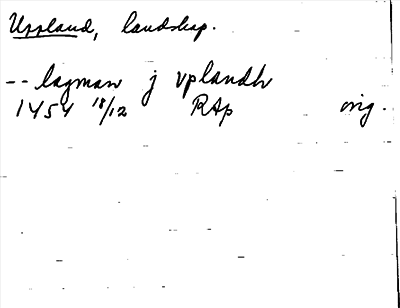 Uppland, landskap.
-- lagman j vplandh
1454 18/12 RAp orig.